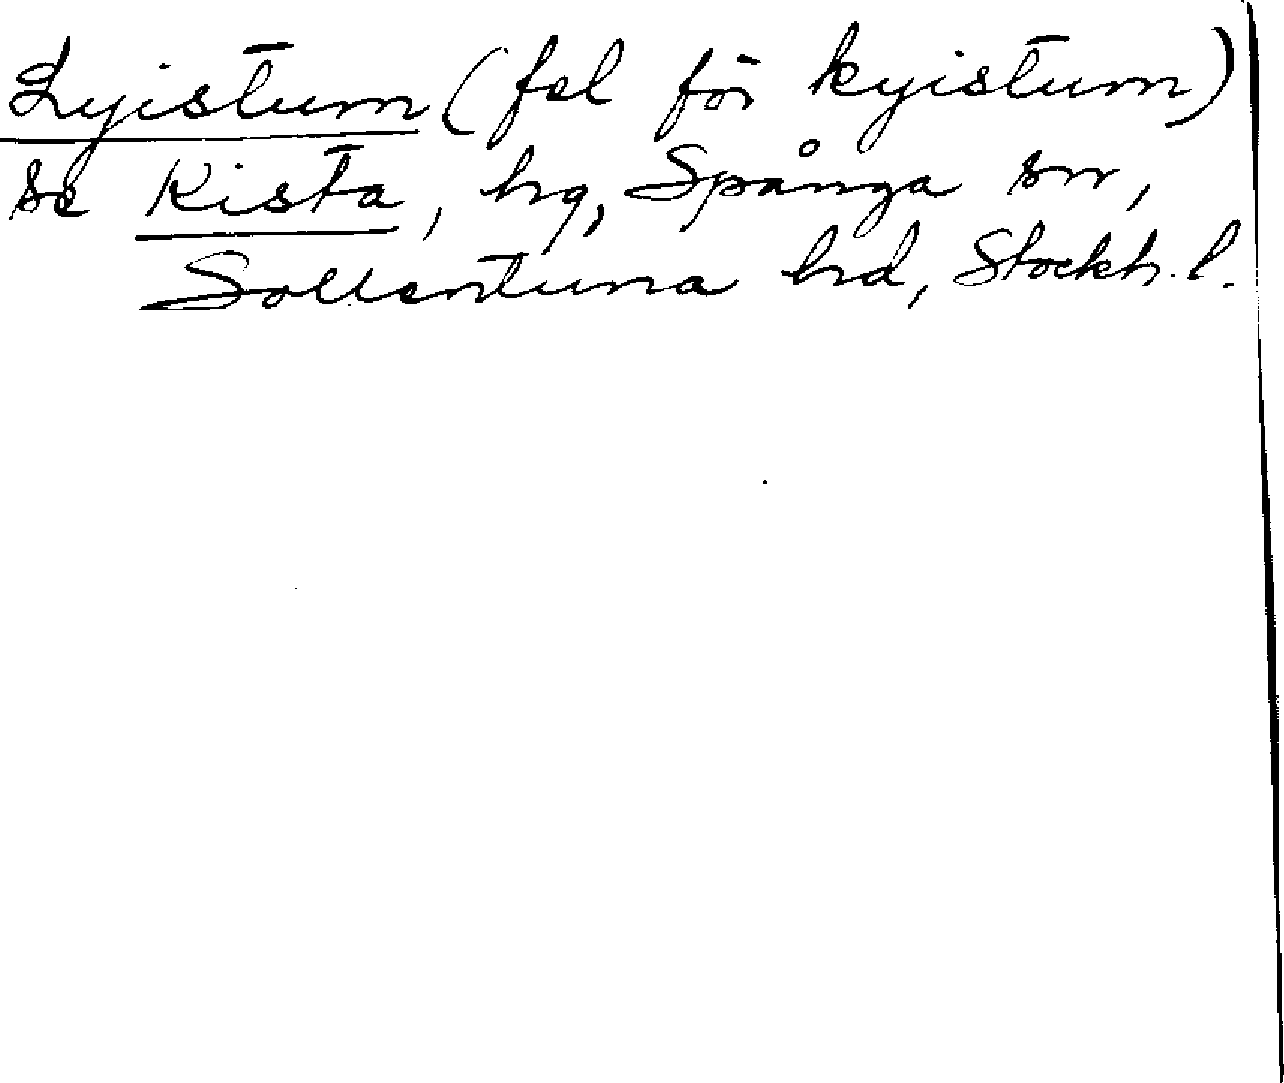 Lyistum (fel för kyistum)
se Kista, hg, Spånga sn,
Sollentuna hd, Stockh. l.